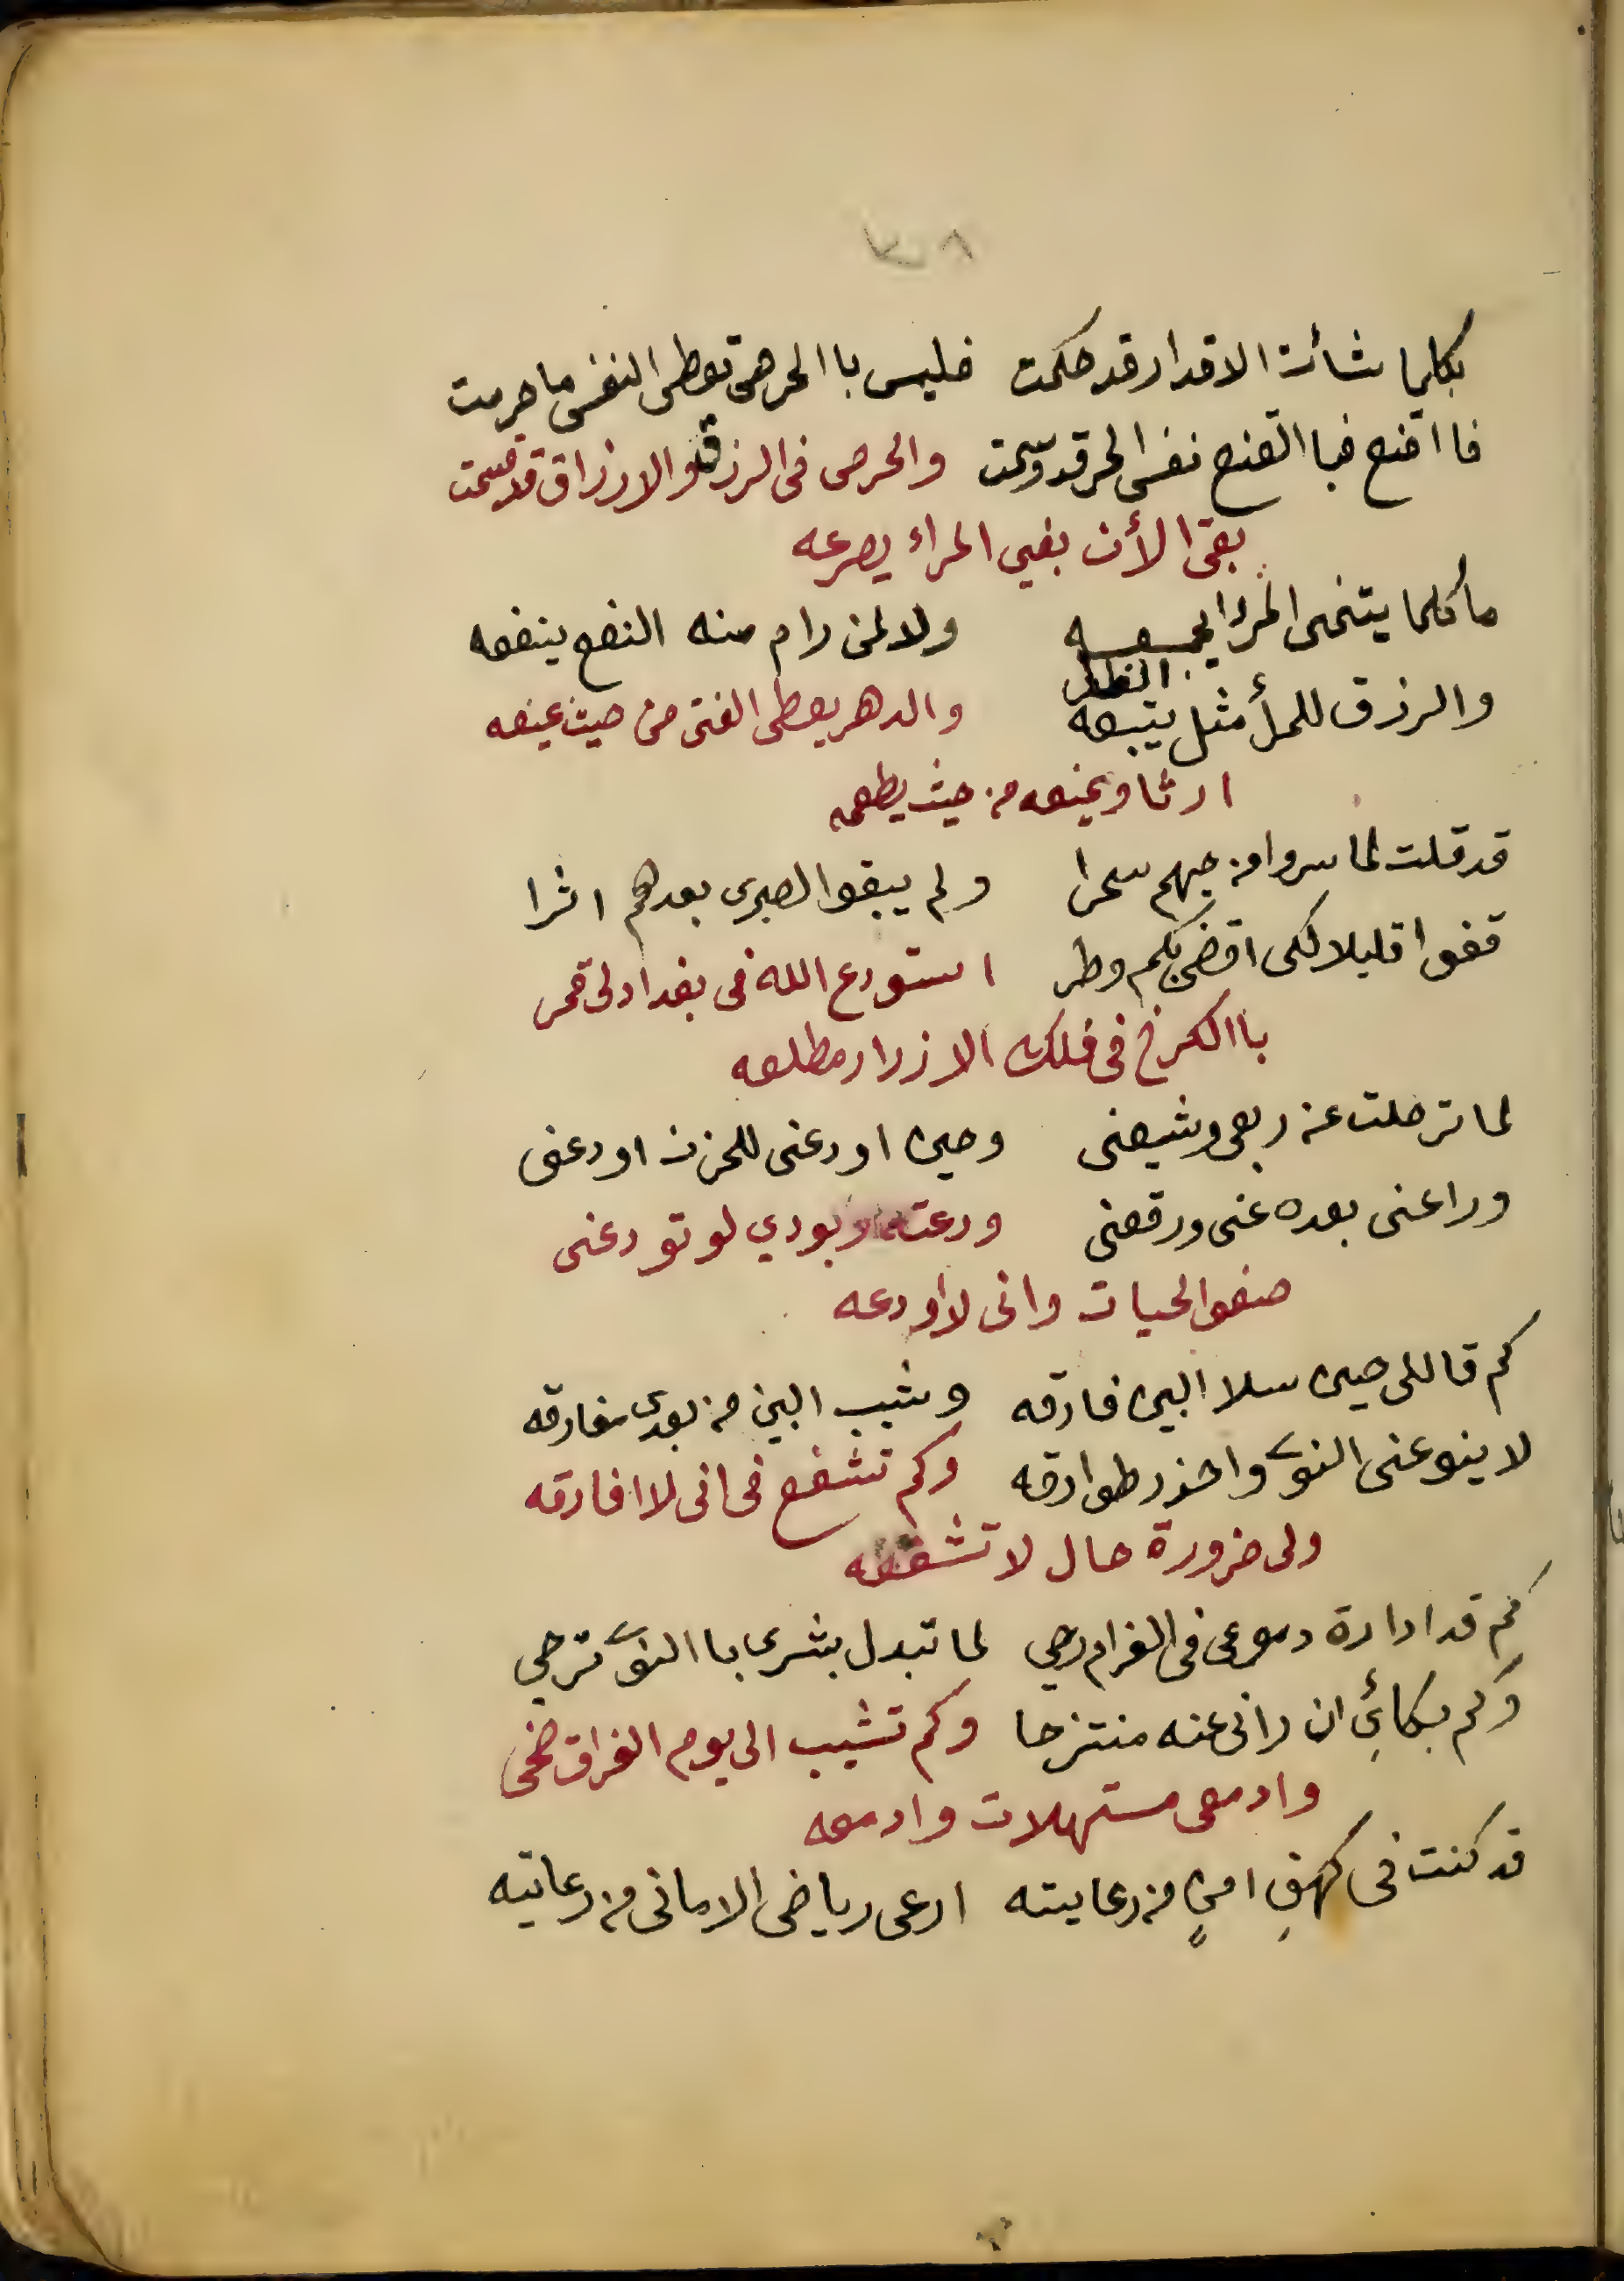 بكلما شائت الاقدار قد حكمت فليس باالحرص تعطى النفس ما حرمت
فااقنع فباالقنع نفس الحر قد وسمت والحرص فى الرزق والارزاق قد قسمت
بغى الأن بغيي المراء يصرعه
ما كلما يتمنى المرؤ يجمعه ولا لمن رام منه النفع ينفعه
والرزق للمرأ مثل الظل يتبعه والدهر يعطى الفتى من حيث يمنعه
ارثا ويمنعه من حيث يطعمه
قد قلت لما سروا من حيهم سحرا ولم يبقوا لصبرى بعدهم اثرا
قفوا قليلا لكى اقضى بكم وطر استودع الله فى بغداد لى قمر
باالكرخ فى فلك الازرار مطلعه
لما ترحلت عن ربعى وشيعنى وحين اودعنى للحزن اودعنى
وراعنى بعده عنى ورقعنى ودعته وبودي لو تودعنى
صفو الحيات وانى لا اودعه
كم قاللى حين سلا البين فارقه وشبب البين من بعدى مفارقه
لا ينوعنى النوى واحذر طوارقه وكم تشفع فى انى لا افارقه
ولى ضرورة حال لا تشفعه
كم قد ادارة دموعى فى الغرام رحى لما تبدل بشرى باالنوى ترحي
وكم بكائي ان رانى عنه منتزحا وكم تشبب الى يوم الفراق ضحى
وادمعى مستهلات وادمعه
قد كنت فى كهفِ امنٍ من رعايته ارعى رياض الامانى من رعايته